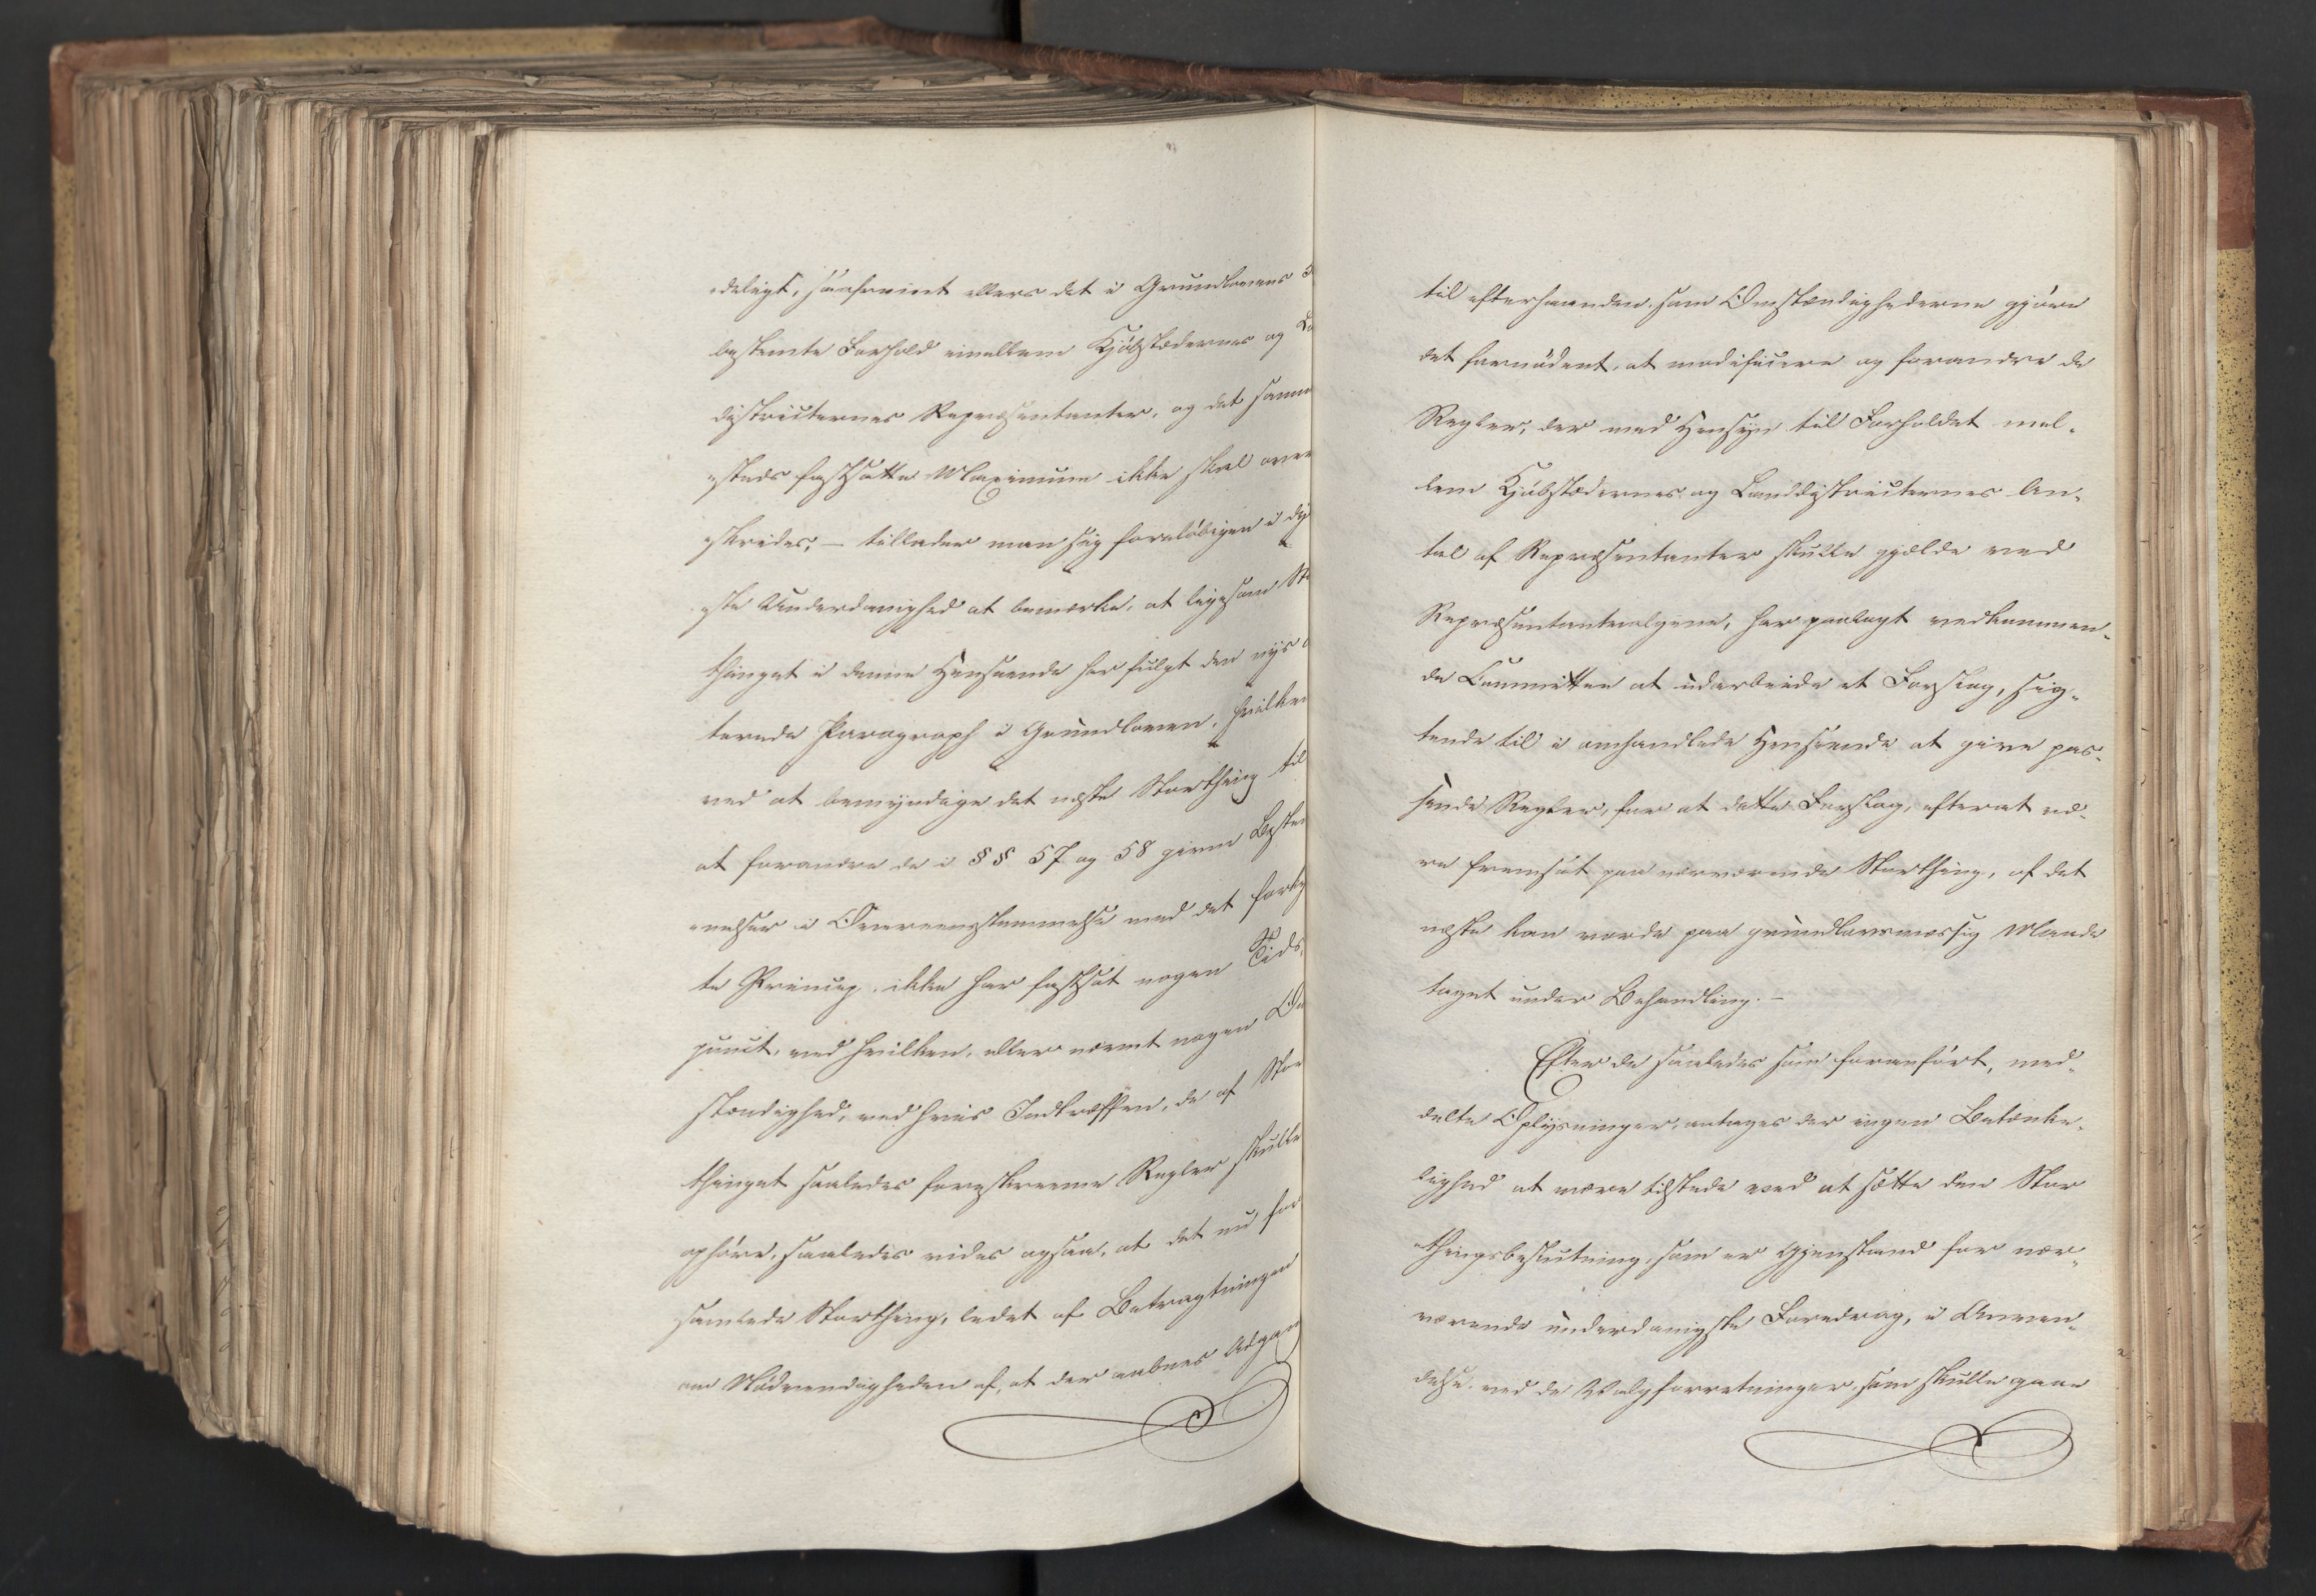 deligt, saafremt ellers det i Grundlovens
bestemte Forhold imellem Kjöbstædernes og
districternes Repræsentanter, og det samme
steds fastsatte Maximum ikke skal over
skrides, – tillader man sig foreløbigen i dy
ste Underdanighed at bemærke, at ligesom St
thinget i denne Henseende har fulgt den nys
terede Paragraph i Grundloven, hvilken
ved at bemyndige det næste Storthing til
at forandre de i §§ 57 og 58 givne Bestem
melser i Overeensstemmelse med det fork
te Princip, ikke har fastsat nogen Tids,
punct, ved hvilken, eller nævnt nogen Om
stændighed, ved hvis Indtræffen, de af Stor
thinget saaledes foreskrevne Regler skulle
ophöre, saaledes vides ogsaa, at det nu for
samlede Storthing, ledet af Betragtningen
om Nödvendigheden af, at der aabnes Adgan
til efterhaanden, som Omstændighederne gjöre
det fornödent, at modificere og forandre de
Regler, der med Hensyn til Forholdet mel-
lem Kjöbstædernes og Landdistricternes An-
tal af Repræsentanter skulle gjælde ved
Repræsentantvalgene, har paalagt vedkommen-
de Committee at udarbeide et Forslag, sig-
tende til i omhandlede Henseende at give pas-
sende Regler, for at dette Forslag, efterat væ-
re fremsat paa nærværende Storthing, af det
næste kan vorde paa grundlovsmæssig Maade
taget under Behandling. –
Efter de saaledes som foranfört, med-
delte Oplysninger, antages der ingen Betænke-
lighed at være tilstede ved at sætte den Stor
thingsbeslutning, som er Gjenstand for nær-
værende underdanigste Foredrag, i Anven-
delse ved de Valgforretninger, som skulle gaae